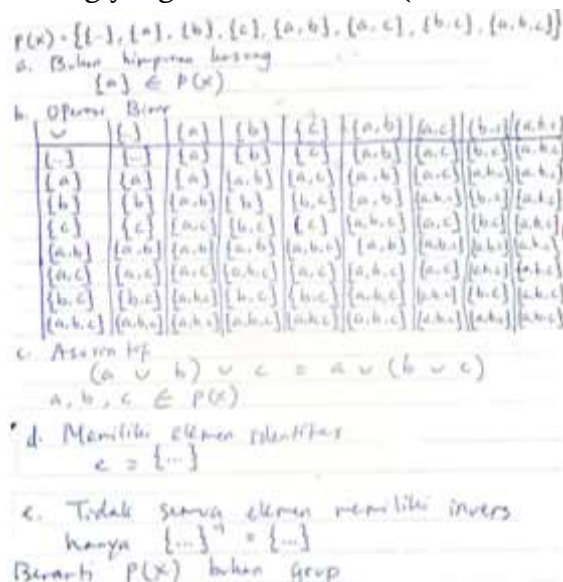 P(x) = {{...}, {a}, {b}, {c}, {a,b}, {a,c}, {b,c}, {a,b,c}}
a. Bukan himpunan kosong
{a} ∈ P(x)
b. Operasi Biner
∪ {...} {a} {b} {c} {a,b} {a,c} {b,c} {a,b,c}
{...} {...} {a} {b} {c} {a,b} {a,c} {b,c} {a,b,c}
{a} {a} {a} {a,b} {a,c} {a,b} {a,c} {a,b,c} {a,b,c}
{b} {b} {a,b} {b} {b,c} {a,b} {a,b,c} {b,c} {a,b,c}
{c} {c} {a,c} {b,c} {c} {a,b,c} {a,c} {b,c} {a,b,c}
{a,b} {a,b} {a,b} {a,b} {a,b,c} {a,b} {a,b,c} {a,b,c} {a,b,c}
{a,c} {a,c} {a,c} {a,b,c} {a,c} {a,b,c} {a,c} {a,b,c} {a,b,c}
{b,c} {b,c} {a,b,c} {b,c} {b,c} {a,b,c} {a,b,c} {b,c} {a,b,c}
{a,b,c} {a,b,c} {a,b,c} {a,b,c} {a,b,c} {a,b,c} {a,b,c} {a,b,c} {a,b,c}
c. Asosiatif
(a ∪ b) ∪ c = a ∪ (b ∪ c)
a, b, c ∈ P(x)
d. Memiliki elemen identitas
e = {...}
e. Tidak semua elemen memiliki invers
hanya {...}⁻¹ = {...}
Berarti P(x) bukan grup